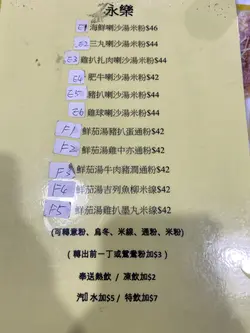 永樂
E1 海鮮喇沙湯米粉$46
E2 三丸喇沙湯米粉$44
E3 雞扒扎肉喇沙湯米粉$44
E4 肥牛喇沙湯米粉$42
E5 豬扒喇沙湯米粉$44
E6 雞球喇沙湯米粉$44
F1 鮮茄湯豬扒蛋通粉$42
F2 鮮茄湯雞中亦通粉$42
F3 鮮茄湯牛肉豬潤通粉$42
F4 鮮茄湯吉列魚柳米線$42
F5 鮮茄湯雞扒墨丸米線$42
(可轉意粉、烏冬、米線、通粉、米粉)
( 轉出前一丁或鴛鴦粉加$3 )
奉送熱飲 / 凍飲加$2
汽水加$5 / 特飲加$7